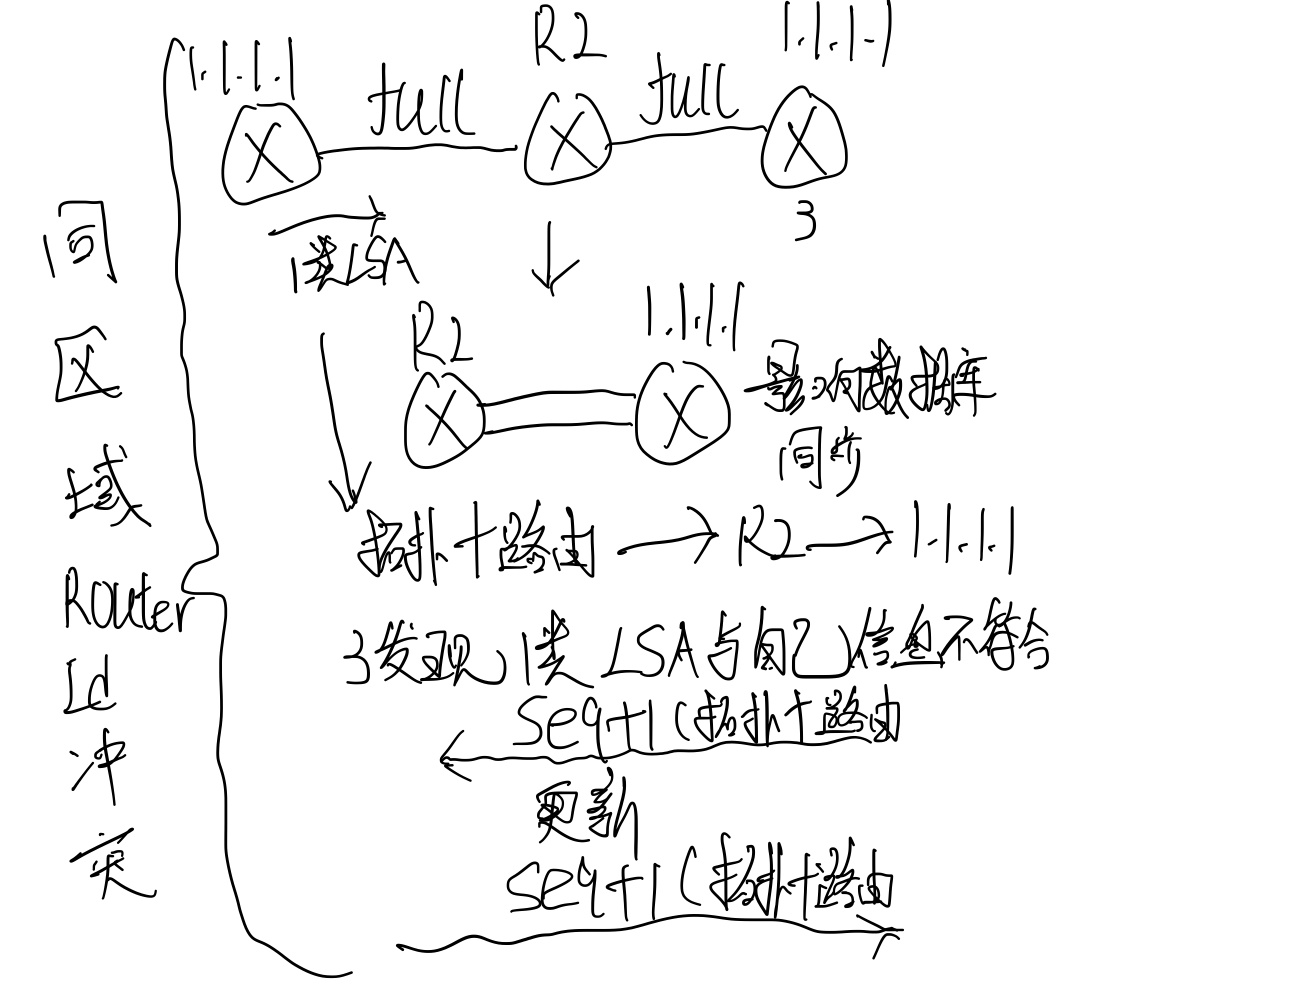 1.1.1.1
R2
1.1.1.1
full
full
3
1类LSA
R2
1.1.1.1
影响数据库
同步
拓扑+路由 → R2 → 1.1.1.1
3发现1类LSA与自己信息不符合
seq+1(拓扑+路由
更新
seq+1(拓扑+路由
同
区
域
Router
Id
冲
突